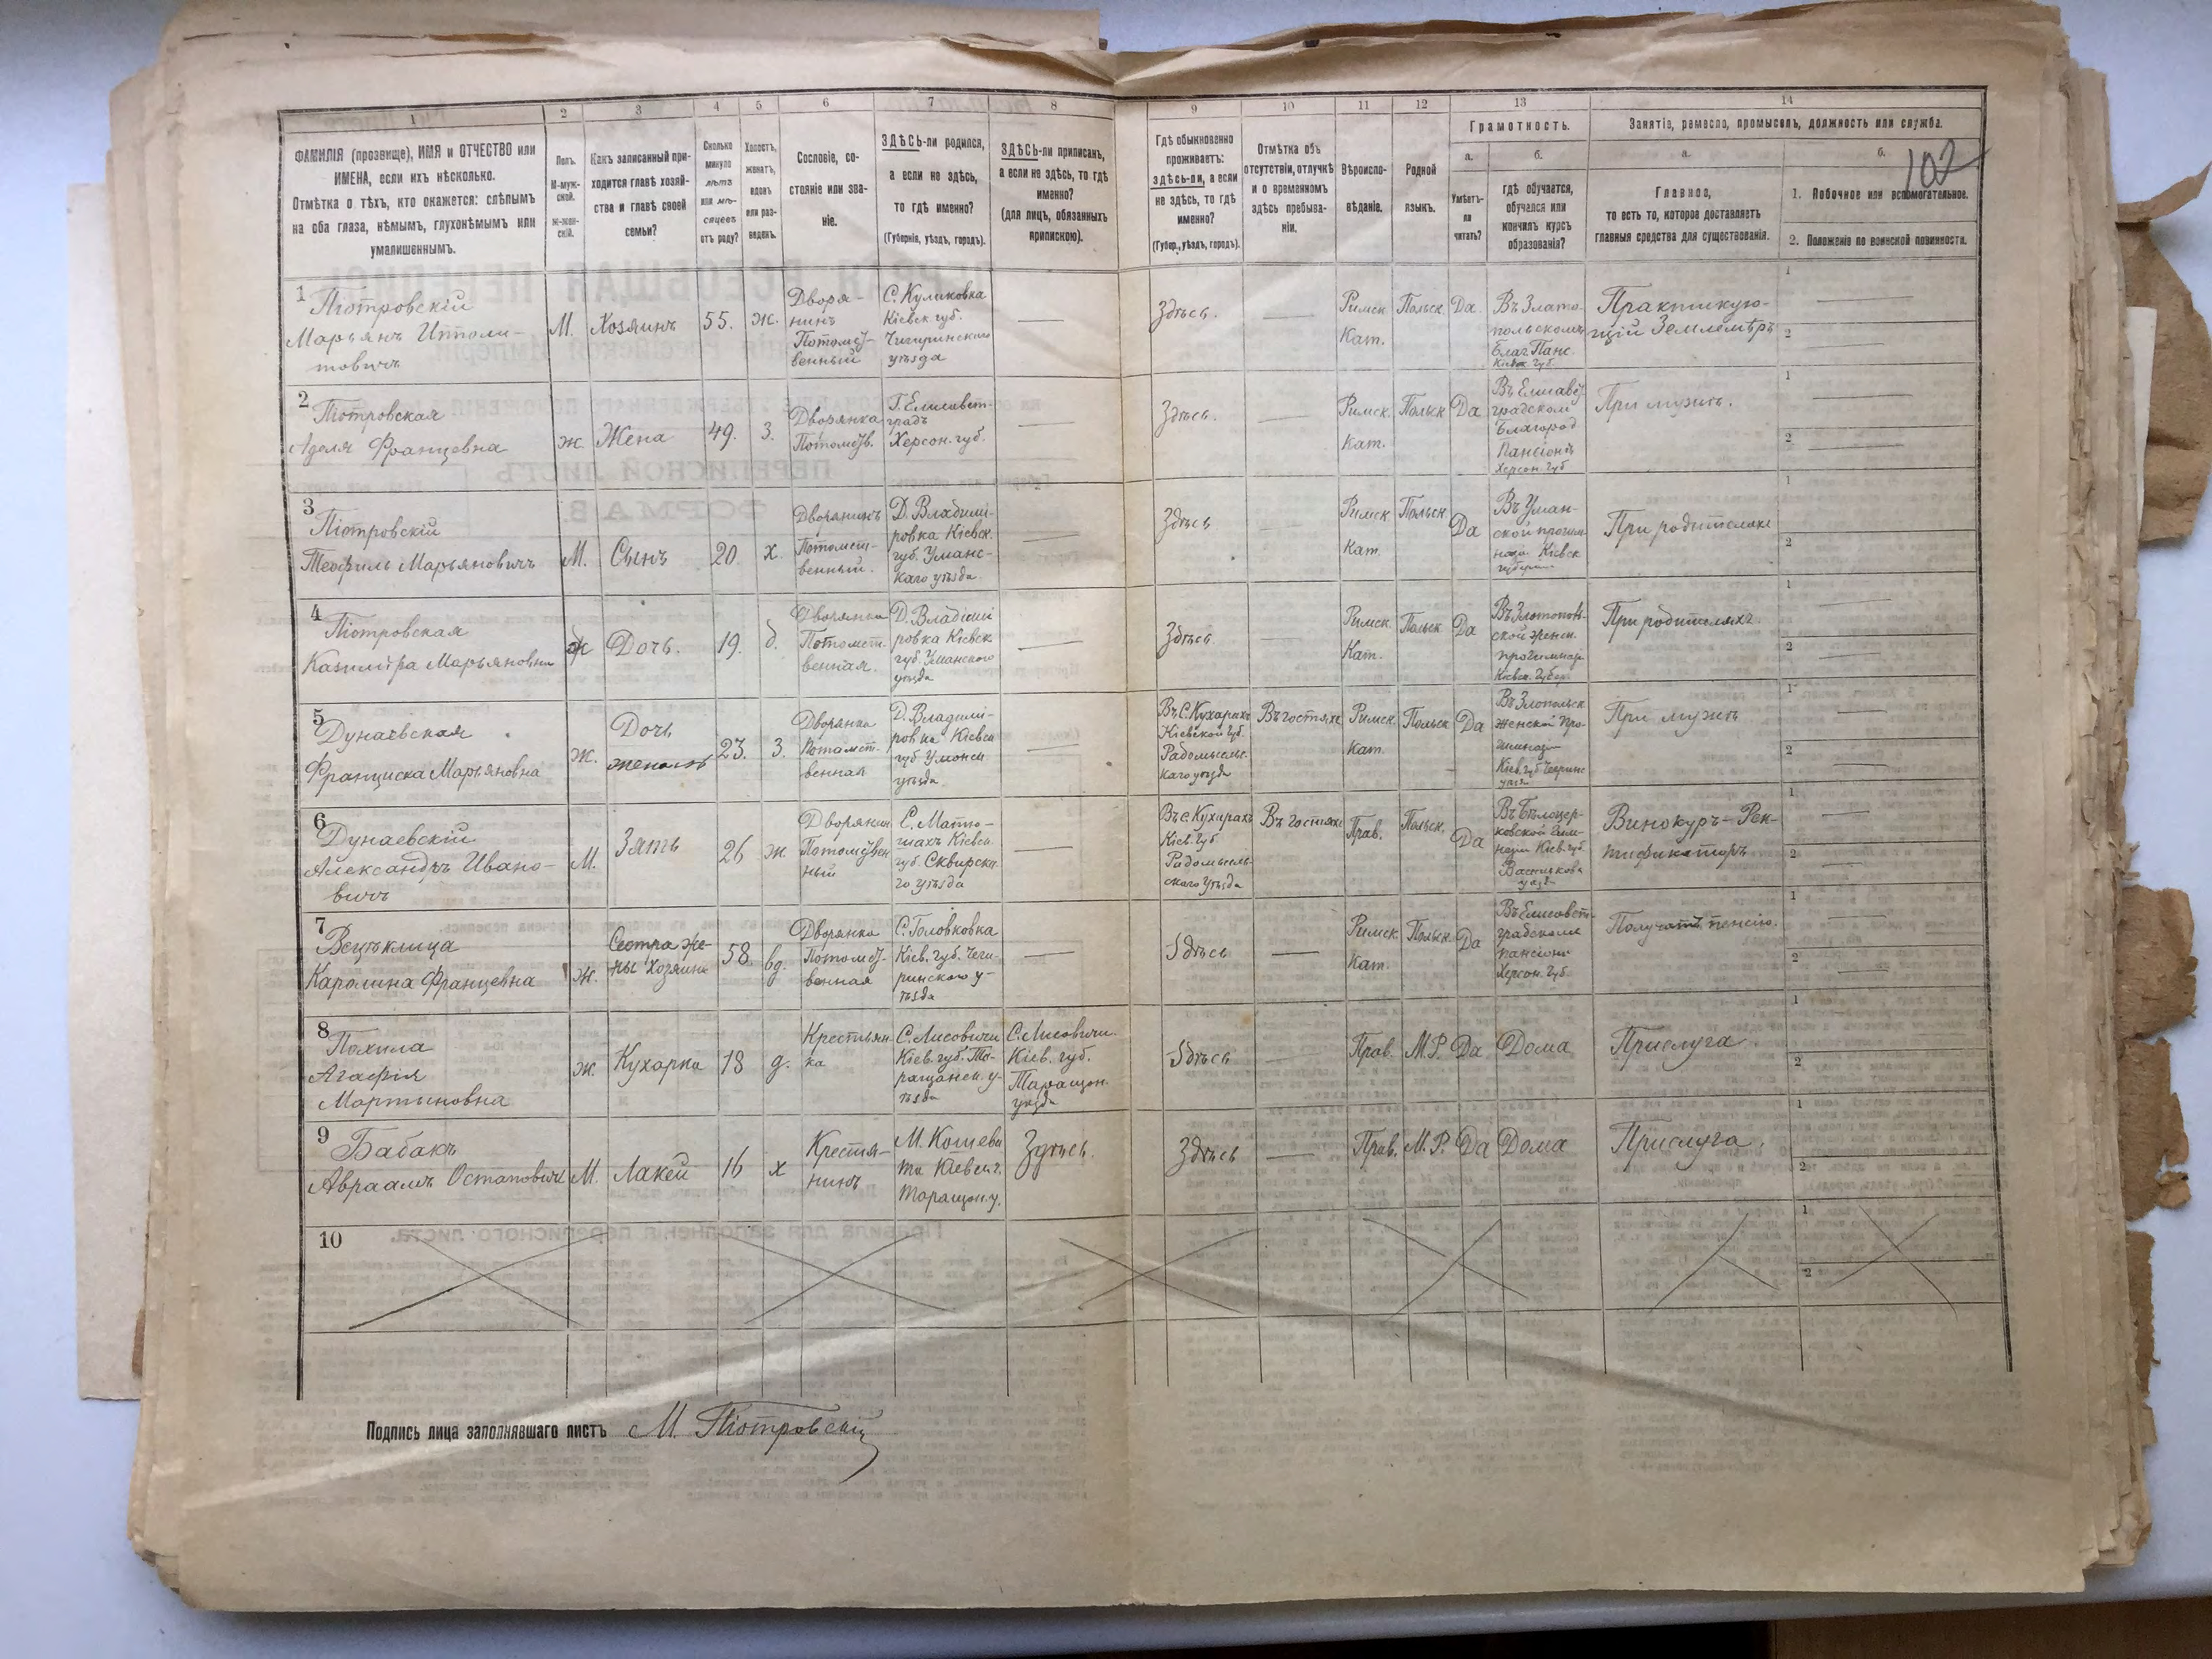 1 2 3 4 5 6 7 8 9 10 11 12 13 14
102
ФАМИЛІЯ (прозвище), ИМЯ и ОТЧЕСТВО или
ИМЕНА, если ихъ нѣсколько.
Отмѣтка о тѣхъ, кто окажется: слѣпымъ
на оба глаза, нѣмымъ, глухонѣмымъ или
умалишеннымъ.
Полъ.
М-муж-
ской.
Ж-жен-
скій.
Какъ записанный при-
ходится главѣ хозяй-
ства и главѣ своей
семьи?
Сколько
минуло
лѣтъ
или мѣ-
сяцевъ
отъ роду?
Холостъ,
женатъ,
вдовъ
или раз-
веденъ.
Сословіе, со-
стояніе или зва-
ніе.
ЗДѢСЬ-ли родился,
а если не здѣсь,
то гдѣ именно?
(Губернія, уѣздъ, городъ).
ЗДѢСЬ-ли приписанъ,
а если не здѣсь, то гдѣ
именно?
(для лицъ, обязанныхъ
припискою).
Гдѣ обыкновенно
проживаетъ:
здѣсь-ли, а если
не здѣсь, то гдѣ
именно?
(Губер., уѣздъ, городъ).
Отмѣтка объ
отсутствіи, отлучкѣ
и о временномъ
здѣсь пребыва-
ніи.
Вѣроиспо-
вѣданіе.
Родной
языкъ.
Грамотность.
а.
Умѣетъ-
ли
читать?
б.
гдѣ обучается,
обучался или
кончилъ курсъ
образованія?
Занятіе, ремесло, промыселъ, должность или служба.
а.
Главное,
то есть то, которое доставляетъ
главныя средства для существованія.
б.
1. Побочное или вспомогательное.
2. Положеніе по воинской повинности.
1
Піотровскій
Марьянъ Ипполи-
товичъ
М.
Хозяинъ
55.
ж.
Дворя-
нинъ
Потомст-
венный
С. Куликовка
Кіевск. губ.
Чигиринскаго
уѣзда
Здѣсь.
Римск.
Кат.
Польск.
Да.
Въ Злато
польскомъ
Благ. Панс.
Кіевск. губ.
Практикую-
щій Землемѣръ
1
2
2
Піотровская
Аделя Францевна
ж
Жена
49.
З.
Дворянка
Потомств.
Г. Елисавет-
градъ
Херсон. губ.
Здѣсь.
Римск.
Кат.
Польск
Да
Въ Елисавет
градском
Благород
Пансіонѣ
Херсон. губ
При мужѣ.
1
2
3
Піотровскій
Теофиль Марьяновичъ
М.
Сынъ
20.
х.
Дворянинъ
Потомст-
венный.
Д. Владими-
ровка Кіевск.
губ. Уманс-
каго уѣзда
Здѣсь
Римск
Кат.
Польск
Да
Въ Уман-
ской прогим-
назіи Кіевск
губерніи
При родителяхъ
1
2
4
Піотровская
Казиміра Марьяновна
ж
Дочь.
19.
д.
Дворянка
Потомст-
венная.
Д. Владими
ровка Кіевск
губ. Уманского
уѣзда
Здѣсь
Римск.
Кат.
Польск
Да
Въ Златополь-
ской женск.
прогимназ
Кіевск. Губер.
При родителяхъ
1
2
5
Дунаевская
Франциска Марьяновна
ж.
Дочь
23.
З.
Дворянка
Потомст.
венная
Д. Владими-
ровка Кіевск
губ Уманск
уѣзда.
Въ С. Кухарахъ
Кіевской Губ.
Радомысльс-
каго уѣзда
Въ гостяхъ
Римск.
Кат.
Польск
Да
Въ Злопольск
женской Про-
гимназіи
Кіев. губ Чегринс
уѣзд
При мужѣ
1
2
6
Дунаевскій
Александръ Ивано-
вичъ
М.
Зять
26
ж.
Дворянин
Потомствен
ный
С. Матю-
шахъ Кіевск.
губ. Сквирска-
го уѣзда
Въ с. Кухарахъ
Кіев. Губ.
Радомысль-
скаго Уѣзда
Въ гостяхъ
Прав.
Польск.
Да
Въ Бѣлоцер-
ковской Гим-
назіи Кіев. губ.
Василькова
уѣзд
Винокуръ-Рек-
тификаторъ
1
2
7
Вецъклица
Каролина Францевна
ж.
Сестра же-
ны Хозяина
58.
вд.
Дворянка
Потомст-
венная
С. Головковка
Кіев. губ. Чеги-
ринского у-
ѣзда
Здѣсь
Римск.
Кат.
Польск.
Да
Въ Елисавет-
градскомъ
пансіонѣ
Херсон. губ
Получаетъ пенсію.
1
2
8
Похила
Агафія
Мартыновна
ж.
Кухарка
18
д.
Крестьян-
ка
С. Лисовичи
Кіев. губ. Та-
ращанск. у-
ѣзда
С. Лисовичи
Кіев. губ.
Таращан.
уѣзда
Здѣсь
Прав.
М.Р.
Да
Дома
Прислуга
1
2
9
Бабакъ
Авраамъ Остаповичъ
М.
Лакей
16
х
Крестья-
нинъ
М. Кошева
та Кіевск. г.
Таращан. у.
Здѣсь.
Здѣсь
Прав.
М.Р.
Да
Дома
Прислуга.
1
2
10
1
2
Подпись лица заполнявшаго листъ М. Піотровскій